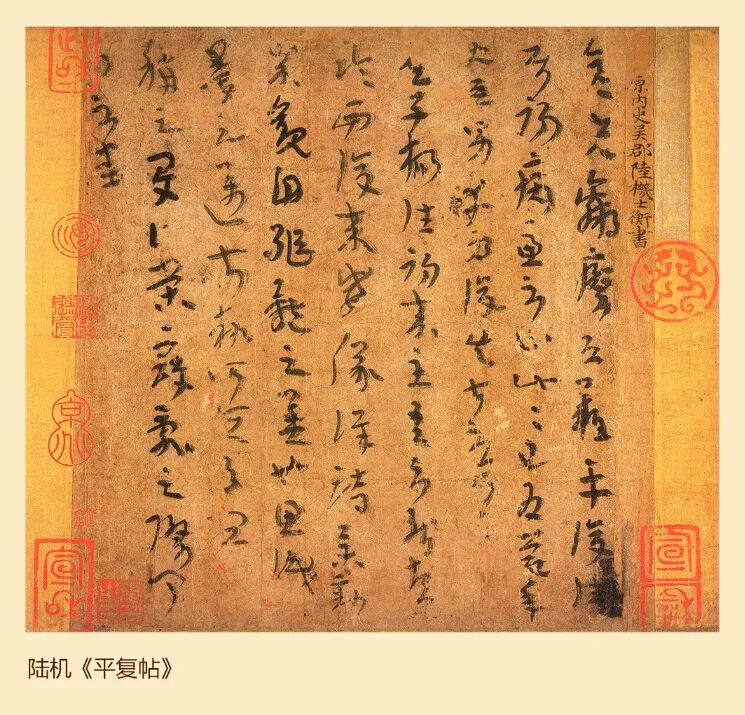 原内史吳郡陸機士衡書
彦先羸瘵恐難平復往屬
初病慮不止此此已為慶承
使唯男幸為復失前憂耳
吳子楊往初來主吾不能盡
臨西復來威儀詳跱舉動
成觀自軀體之美也思識
量之邁前執所恒有宜
稱之夏伯榮寇亂之際聞
問不悉
宣和
政和
宣和
陆机《平复帖》